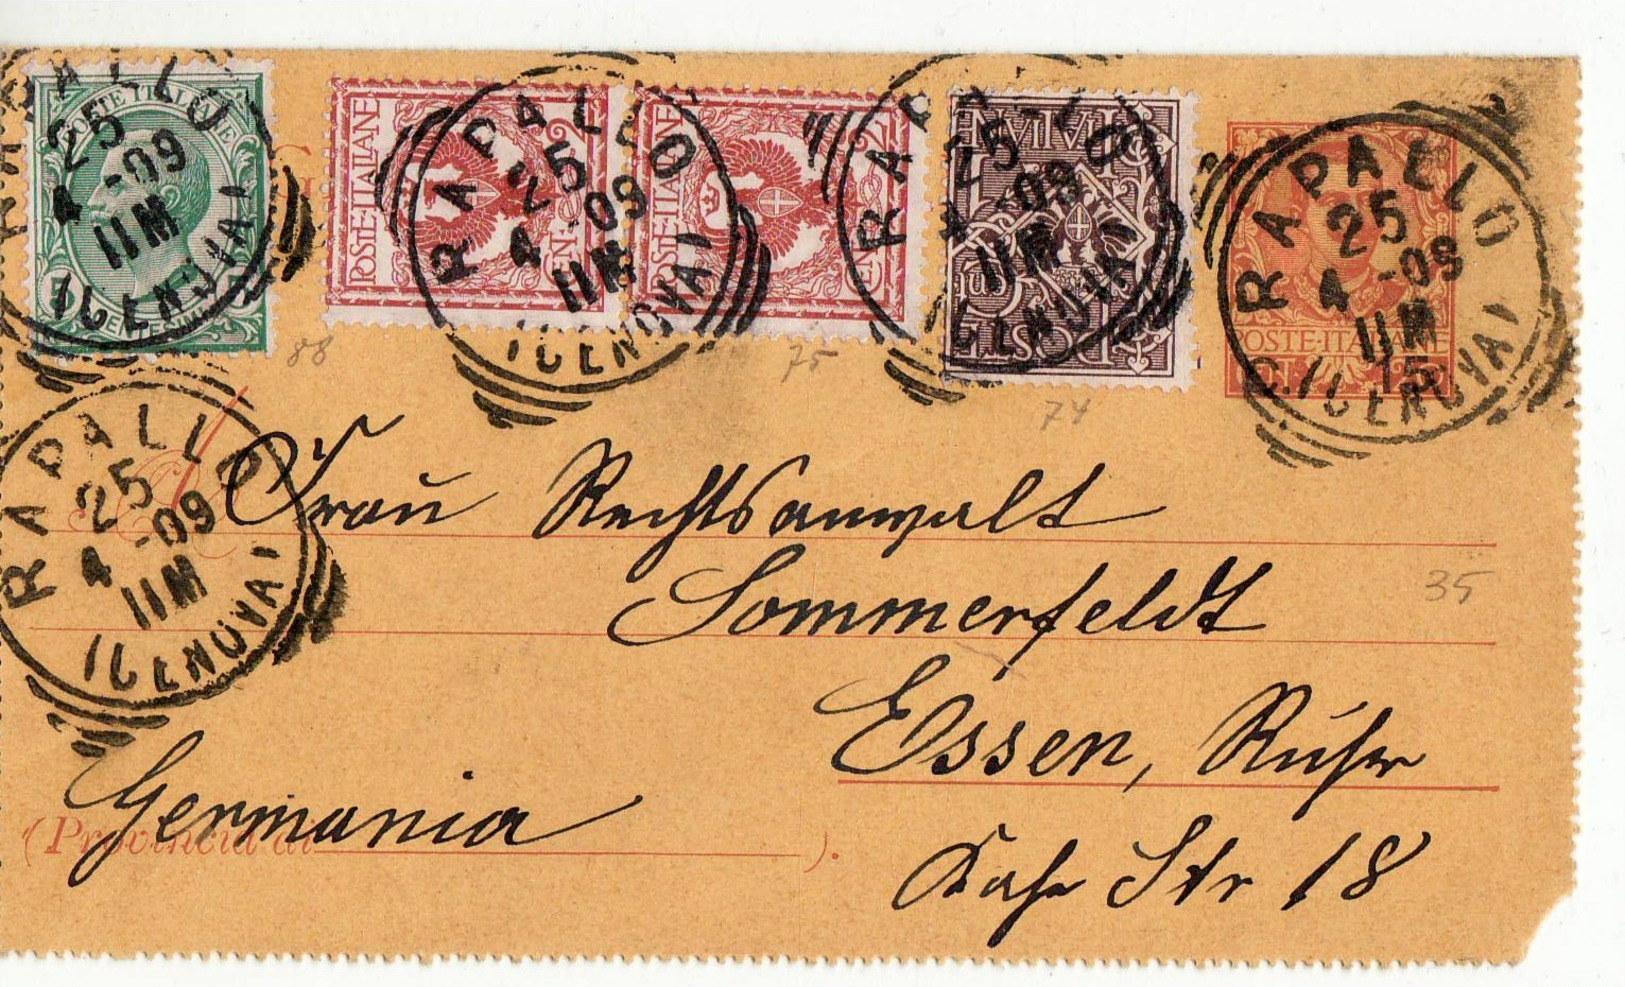 RAPALLO
25
4 -09
11M
(GENOVA)
POSTE ITALIANE
5 CENTESIMI 5
RAPALLO
25
4 -09
11M
(GENOVA)
POSTE·ITALIANE
CENT·
POSTE·ITALIANE
CENT
RAPALLO
25
4 -09
11M
(GENOVA)
ITALIANE
POSTE
RAPALLO
25
4 -09
11M
(GENOVA)
POSTE·ITALIANE
15
88
75
74
RAPALLO
25
4 -09
11M
(GENOVA)
A
Frau Rechtsanwalt
Sommerfeldt
35
Essen, Ruhr
Germania
(Provincia di ).
Str 18